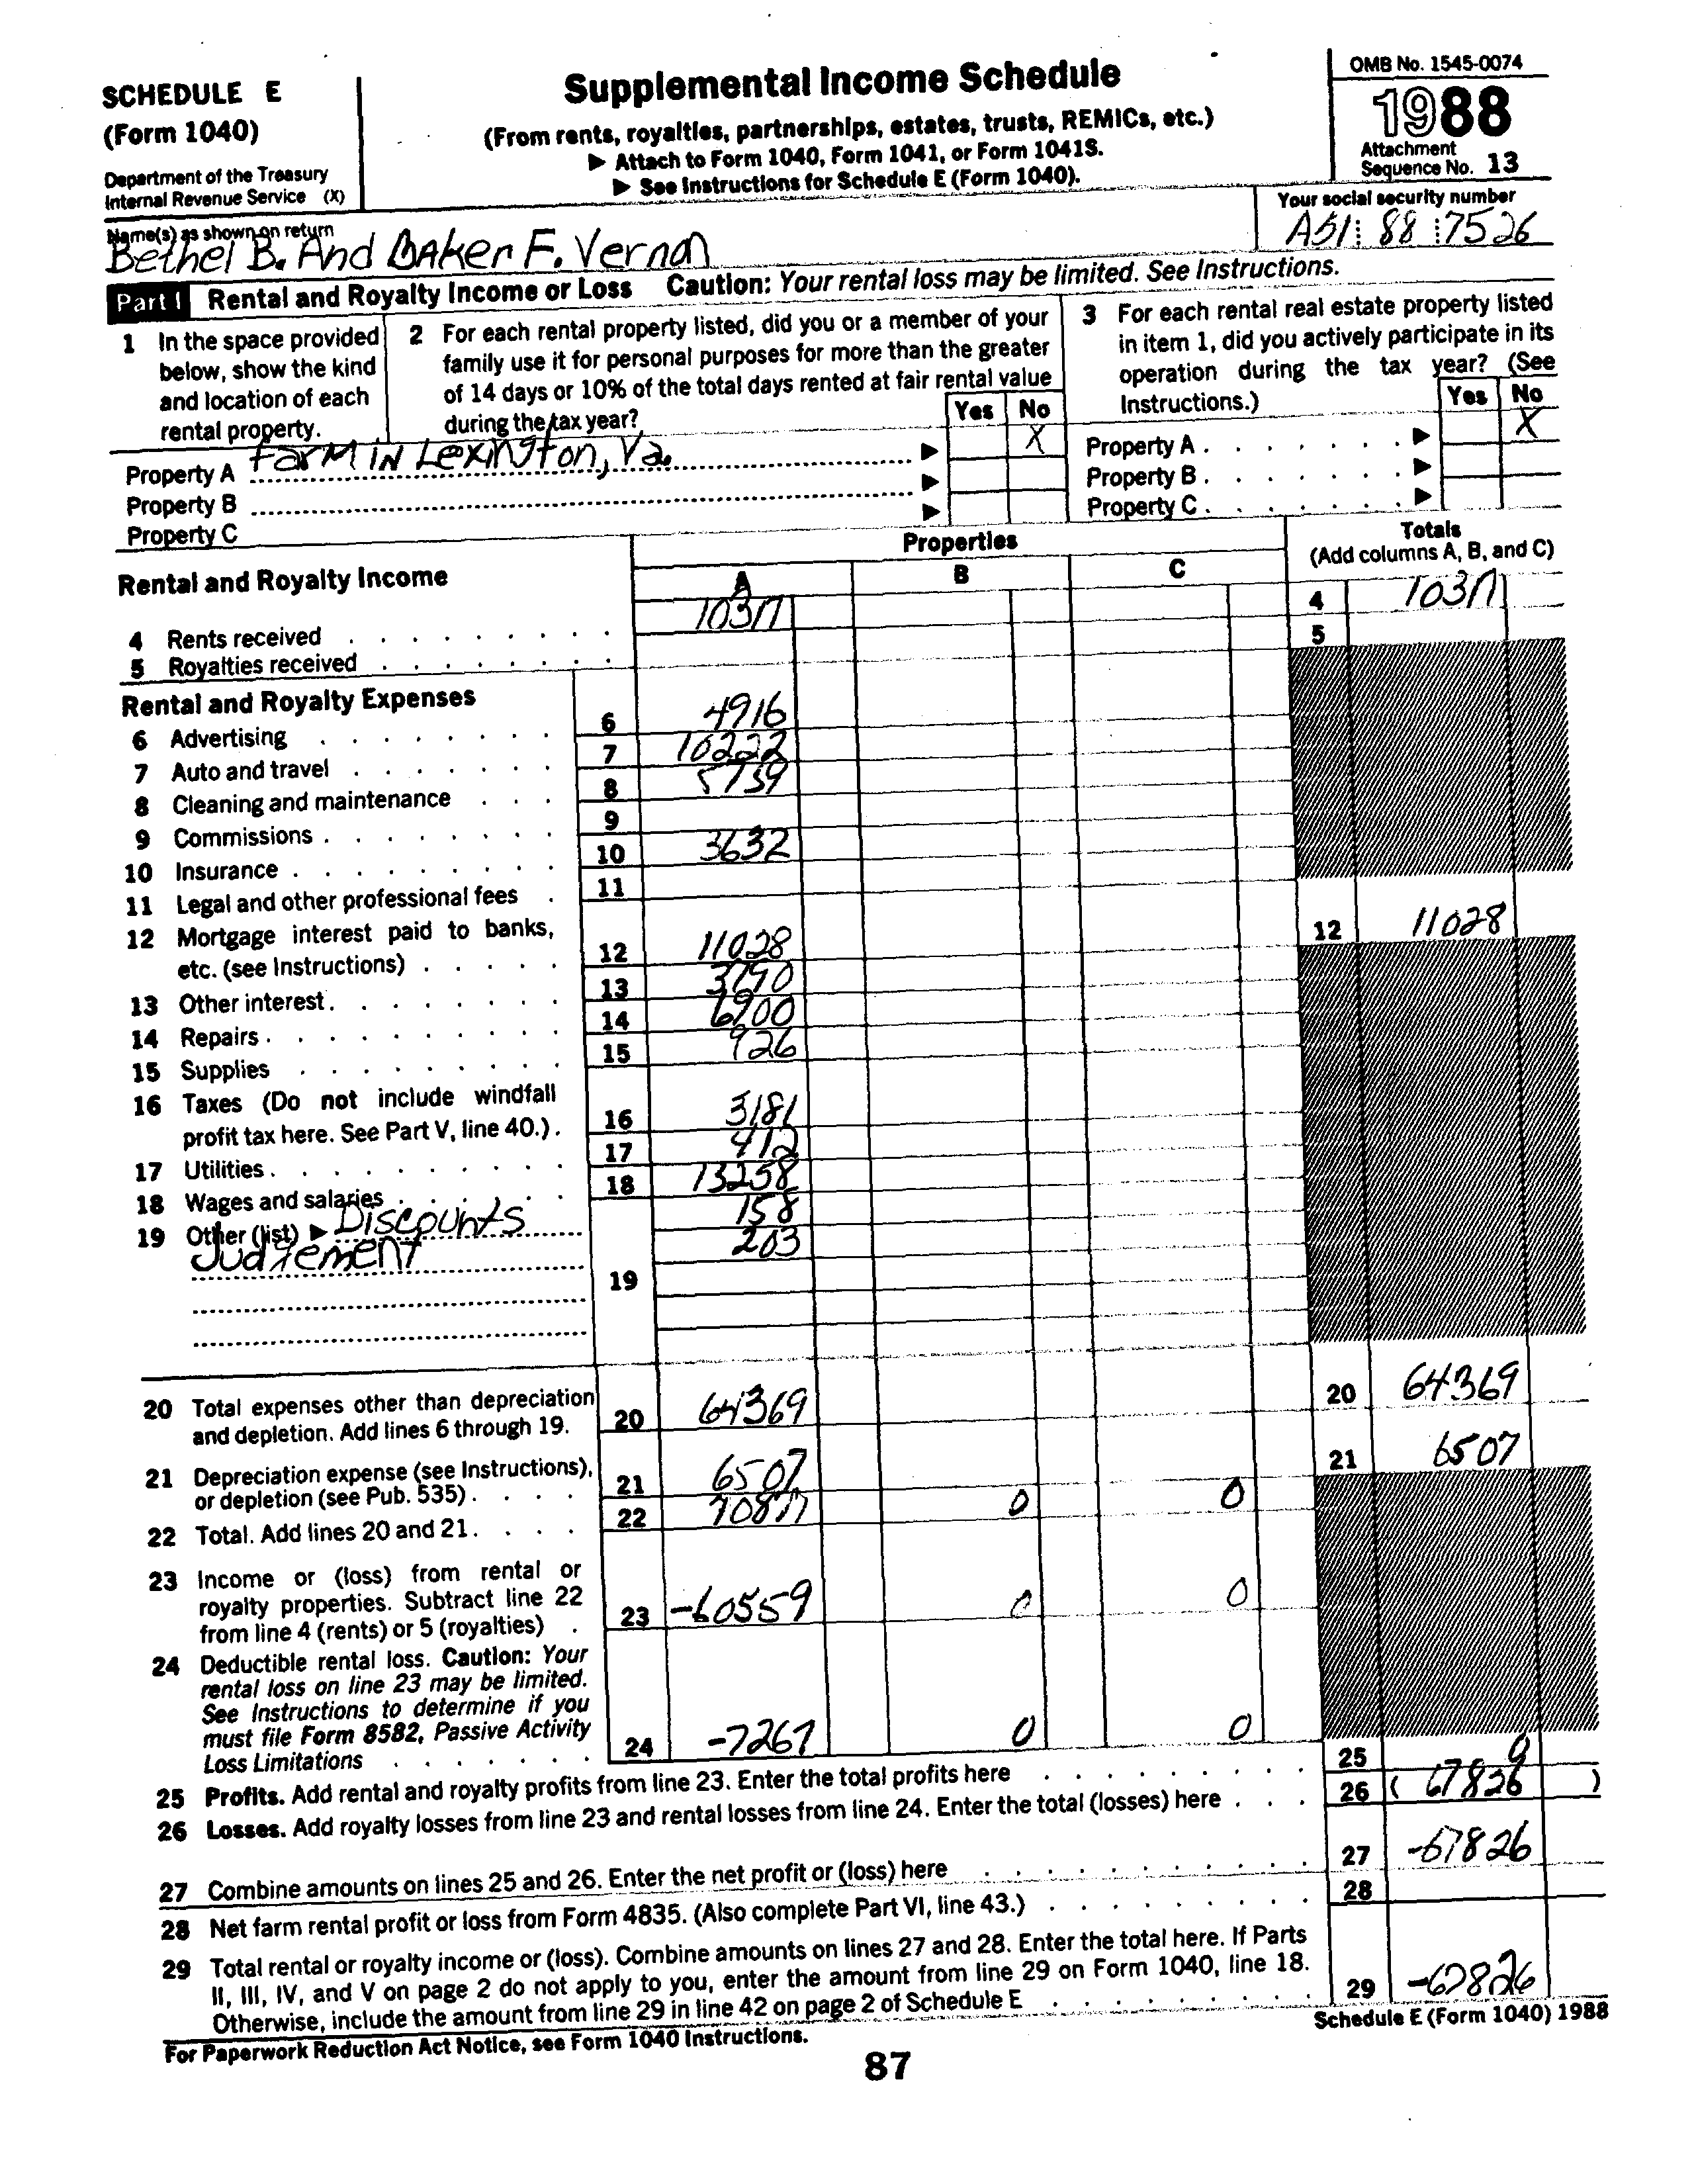 SCHEDULE E
(Form 1040)
Department of the Treasury
Internal Revenue Service (X)
Supplemental Income Schedule
(From rents, royalties, partnerships, estates, trusts, REMICs, etc.)
▶ Attach to Form 1040, Form 1041, or Form 1041S.
▶ See Instructions for Schedule E (Form 1040).
OMB No. 1545-0074
1988
Attachment
Sequence No. 13
Name(s) as shown on return
Bethel B. And BAKer F. Vernon
Your social security number
A51 88 7526
Part I Rental and Royalty Income or Loss Caution: Your rental loss may be limited. See Instructions.
1 In the space provided
below, show the kind
and location of each
rental property.
2 For each rental property listed, did you or a member of your
family use it for personal purposes for more than the greater
of 14 days or 10% of the total days rented at fair rental value
during the tax year?
Yes No
3 For each rental real estate property listed
in item 1, did you actively participate in its
operation during the tax year? (See
Instructions.)
Yes No
Property A FarM iN Lexington, Va. ▶ X Property A ▶ X
Property B ▶ Property B ▶
Property C ▶ Property C ▶
Rental and Royalty Income
Properties
A B C
Totals
(Add columns A, B, and C)
4 Rents received 10317 4 10317
5 Royalties received 5
Rental and Royalty Expenses
6 Advertising 6 4916
7 Auto and travel 7 10222
8 Cleaning and maintenance 8 5739
9 Commissions 9
10 Insurance 10 3632
11 Legal and other professional fees 11
12 Mortgage interest paid to banks,
etc. (see Instructions) 12 11028 12 11028
13 Other interest 13 3790
14 Repairs 14 6900
15 Supplies 15 926
16 Taxes (Do not include windfall
profit tax here. See Part V, line 40.) 16 3181
17 Utilities 17 412
18 Wages and salaries 18 13258
19 Other (list) ▶ Discounts 158
Judgement 203
19
20 Total expenses other than depreciation
and depletion. Add lines 6 through 19. 20 64369 20 64369
21 Depreciation expense (see Instructions),
or depletion (see Pub. 535) 21 6507 21 6507
22 Total. Add lines 20 and 21 22 70877 0 0
23 Income or (loss) from rental or
royalty properties. Subtract line 22
from line 4 (rents) or 5 (royalties) 23 -60559 0 0
24 Deductible rental loss. Caution: Your
rental loss on line 23 may be limited.
See Instructions to determine if you
must file Form 8582, Passive Activity
Loss Limitations 24 -7267 0 0
25 Profits. Add rental and royalty profits from line 23. Enter the total profits here 25 0
26 Losses. Add royalty losses from line 23 and rental losses from line 24. Enter the total (losses) here 26 ( 67826 )
27 Combine amounts on lines 25 and 26. Enter the net profit or (loss) here 27 -67826
28 Net farm rental profit or loss from Form 4835. (Also complete Part VI, line 43.) 28
29 Total rental or royalty income or (loss). Combine amounts on lines 27 and 28. Enter the total here. If Parts
II, III, IV, and V on page 2 do not apply to you, enter the amount from line 29 on Form 1040, line 18.
Otherwise, include the amount from line 29 in line 42 on page 2 of Schedule E 29 -67826
For Paperwork Reduction Act Notice, see Form 1040 Instructions.
Schedule E (Form 1040) 1988
87